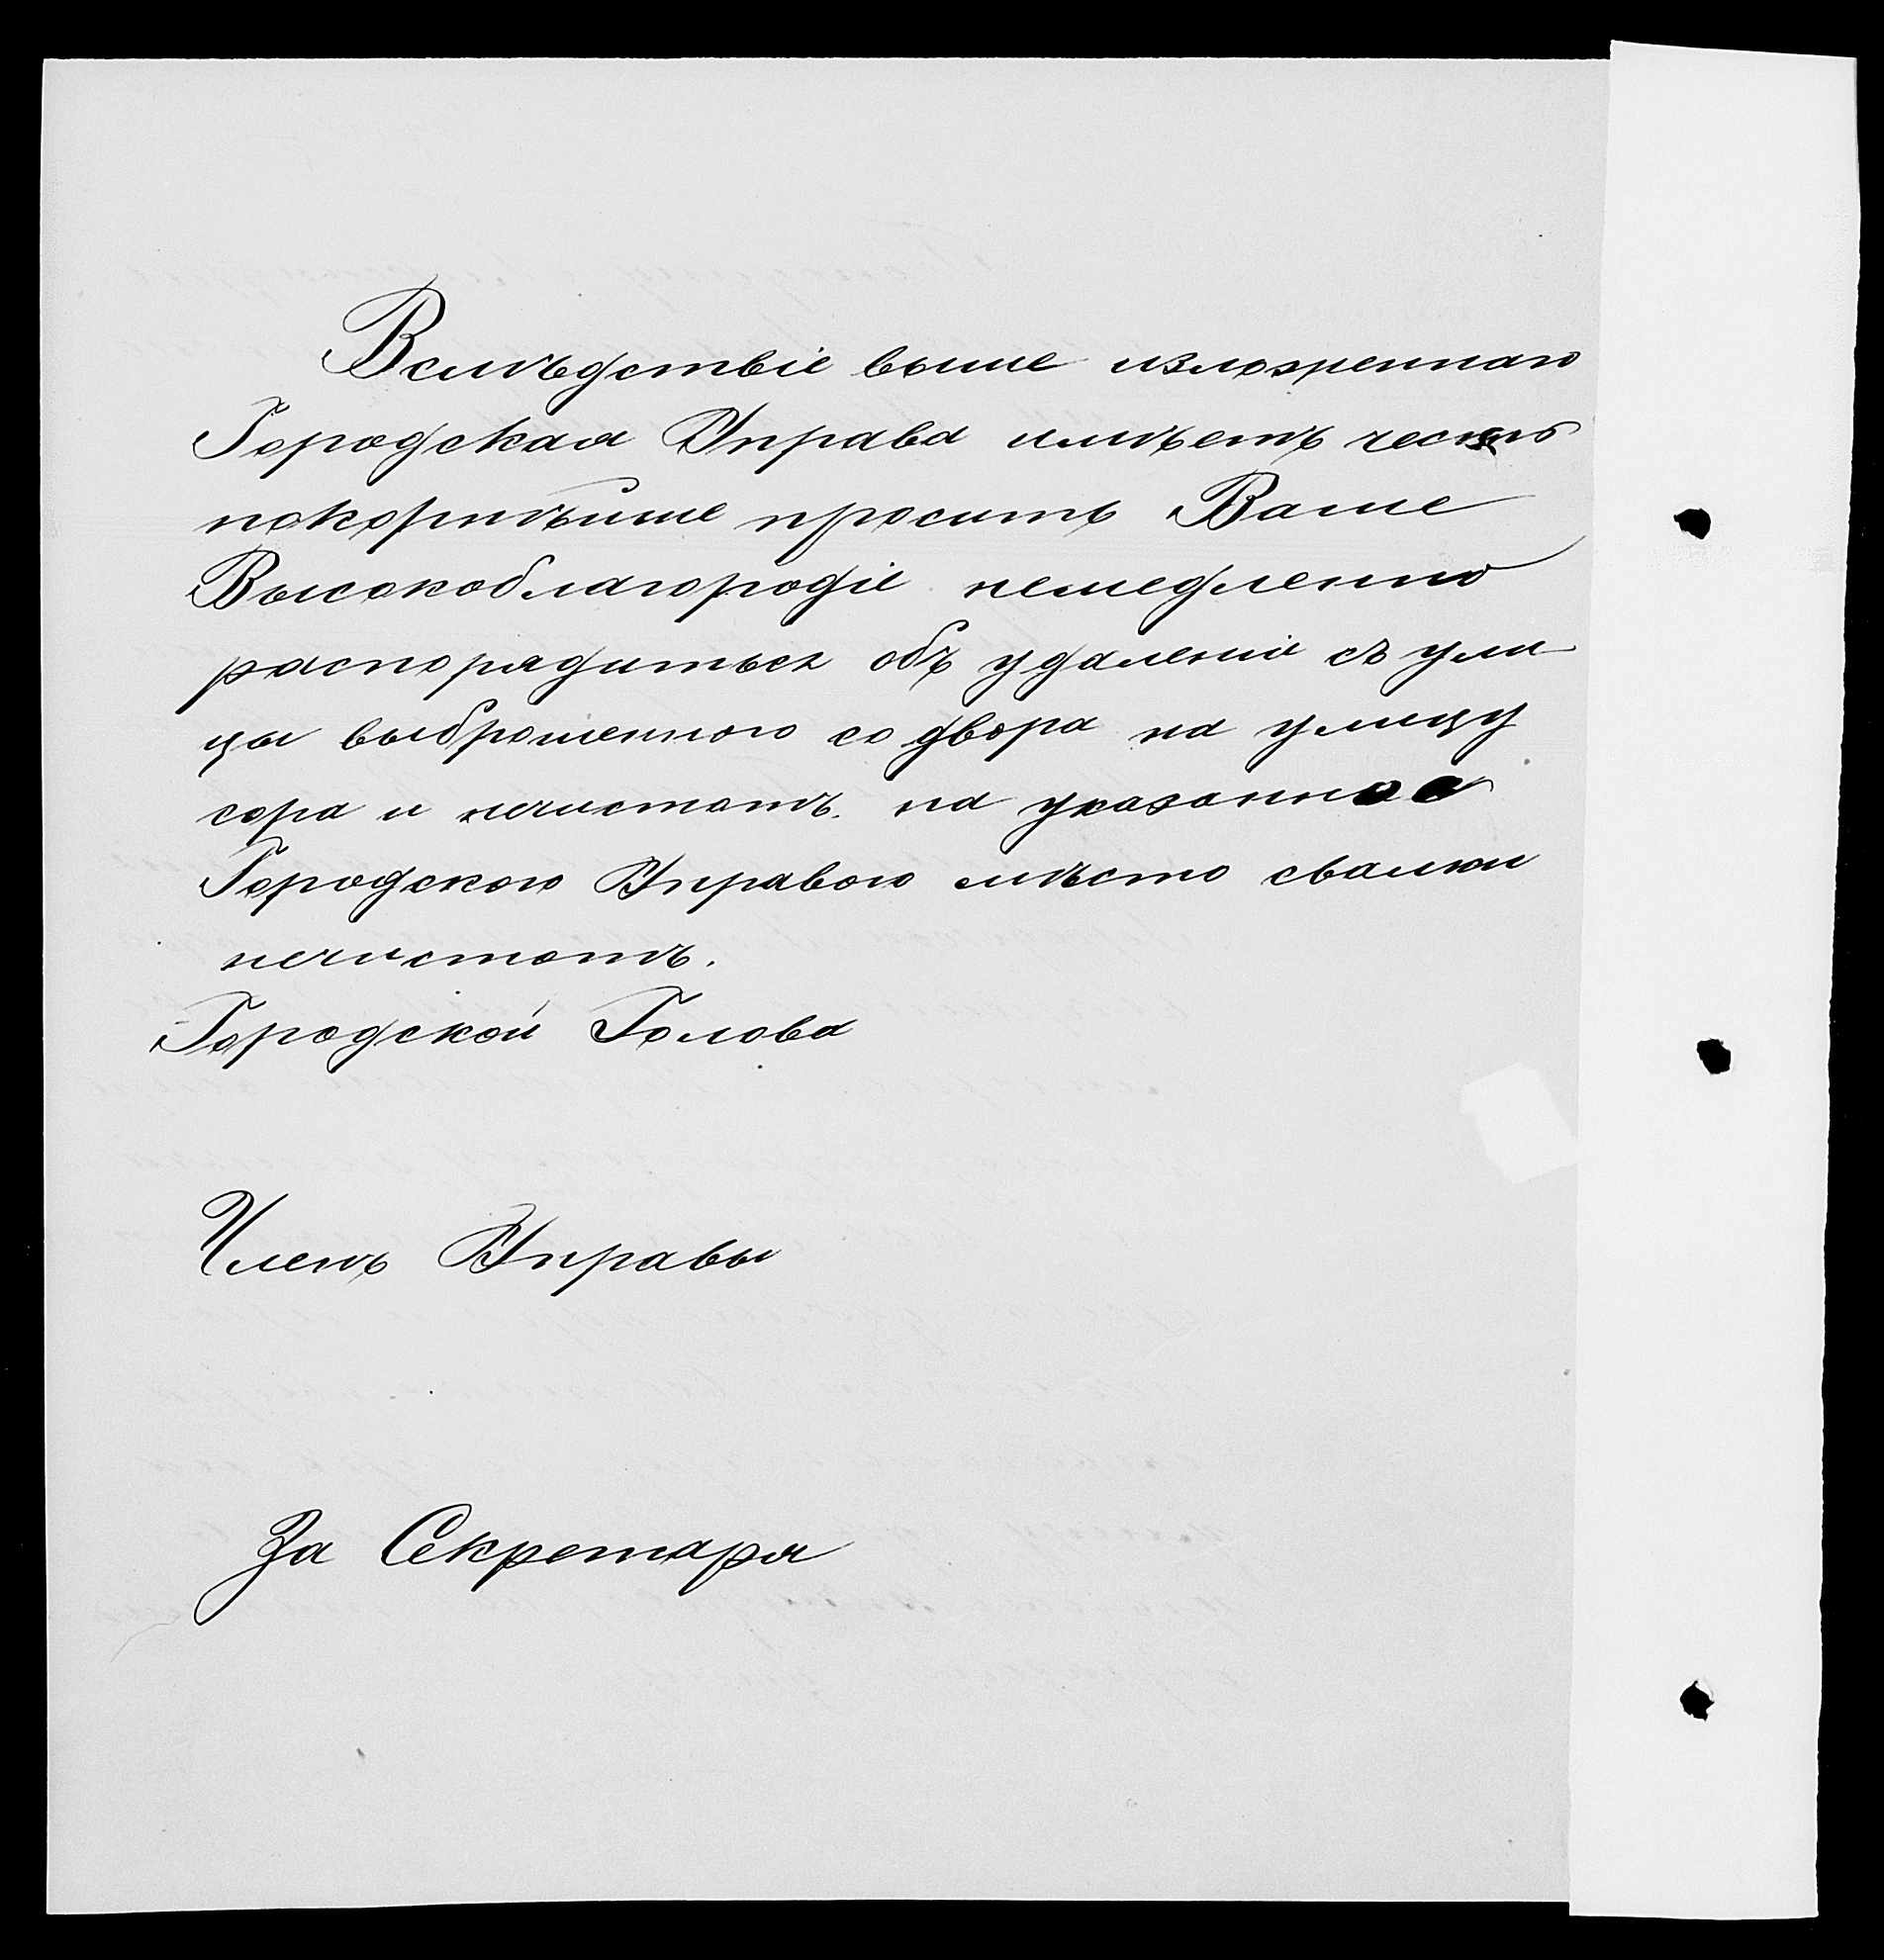 Вслѣдствіе выше изложеннаго
Городская Управа имѣетъ честь
покорнѣйше просить Ваше
Высокоблагородіе немедленно
распорядиться объ удаленіи съ ули
цы выброшенного со двора на улицу
сора и нечистотъ. на указанное
Городскою Управою мѣсто свалки
нечистотъ.
Городской Голова
Членъ Управы
За Секретаря